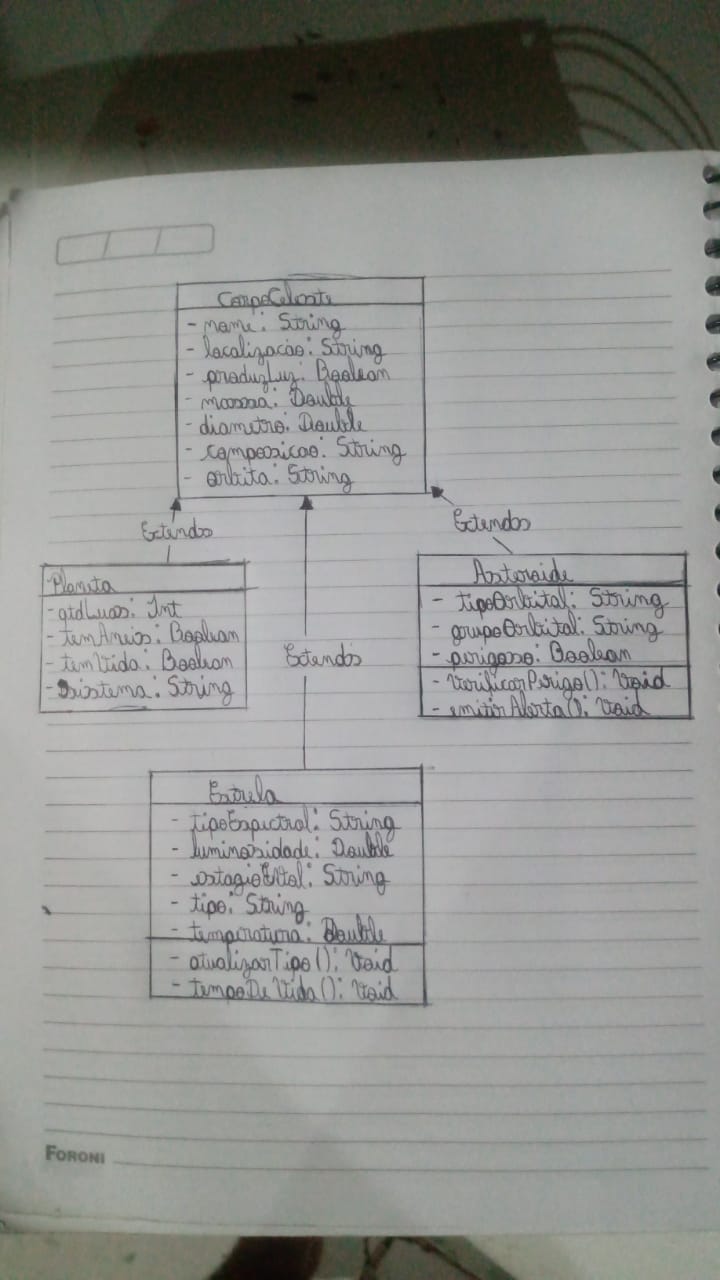 CorpoCeleste
- nome: String
- localizacao: String
- produzLuz: Boolean
- massa: Double
- diametro: Double
- composicao: String
- orbita: String
Extends
Extends
Planeta
- qtdLuas: Int
- temAneis: Boolean
- temVida: Boolean
- sistema: String
Asteroide
- tipoOrbital: String
- grupoOrbital: String
- perigoso: Boolean
- verificarPerigo(): Void
- emitirAlerta(): Void
Extends
Estrela
- tipoEspectral: String
- luminosidade: Double
- estagioVital: String
- tipo: String
- temperatura: Double
- atualizarTipo(): Void
- tempoDeVida(): Void
FORONI